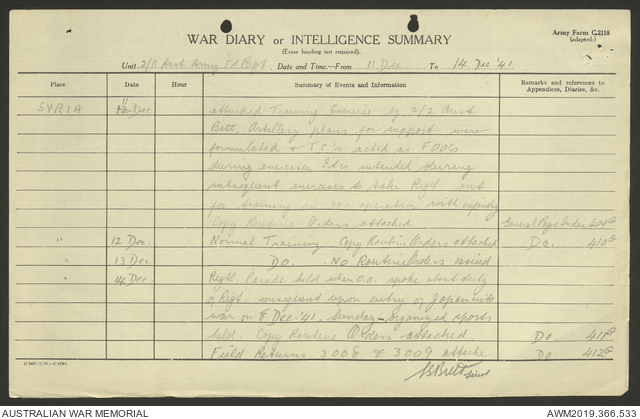 Army Form C.2118
(adapted.)
WAR DIARY or INTELLIGENCE SUMMARY
(Erase heading not required).
Unit 2/11 Aust Army Fd Regt. Date and Time—From 11 Dec To 14 Dec '41
Place Date Hour Summary of Events and Information Remarks and references to Appendices, Diaries, &c.
SYRIA 11 Dec attended Training Exercise by 2/2 Aust
Batt. Artillery plans for support were
formulated & T.C's acted as FOOs
during exercises. It is intended during
subsequent exercises to take Regt. out
for training in co-operation with
Copy Routine Orders attached General Page Index 409
" 12 Dec. Normal Training. Copy Routine Orders attached Do. 410
" 13 Dec Do. No Routine Orders issued
" 14 Dec. Regtl. Parade held when C.O. spoke about duty
of Regt. consequent upon entry of Japan into
war on 8 Dec. '41. Sunday - organised sports
held. Copy Routine Orders attached. Do. 411
Field Returns 3008 & 3009 attache Do 412
AUSTRALIAN WAR MEMORIAL AWM2019.366.533